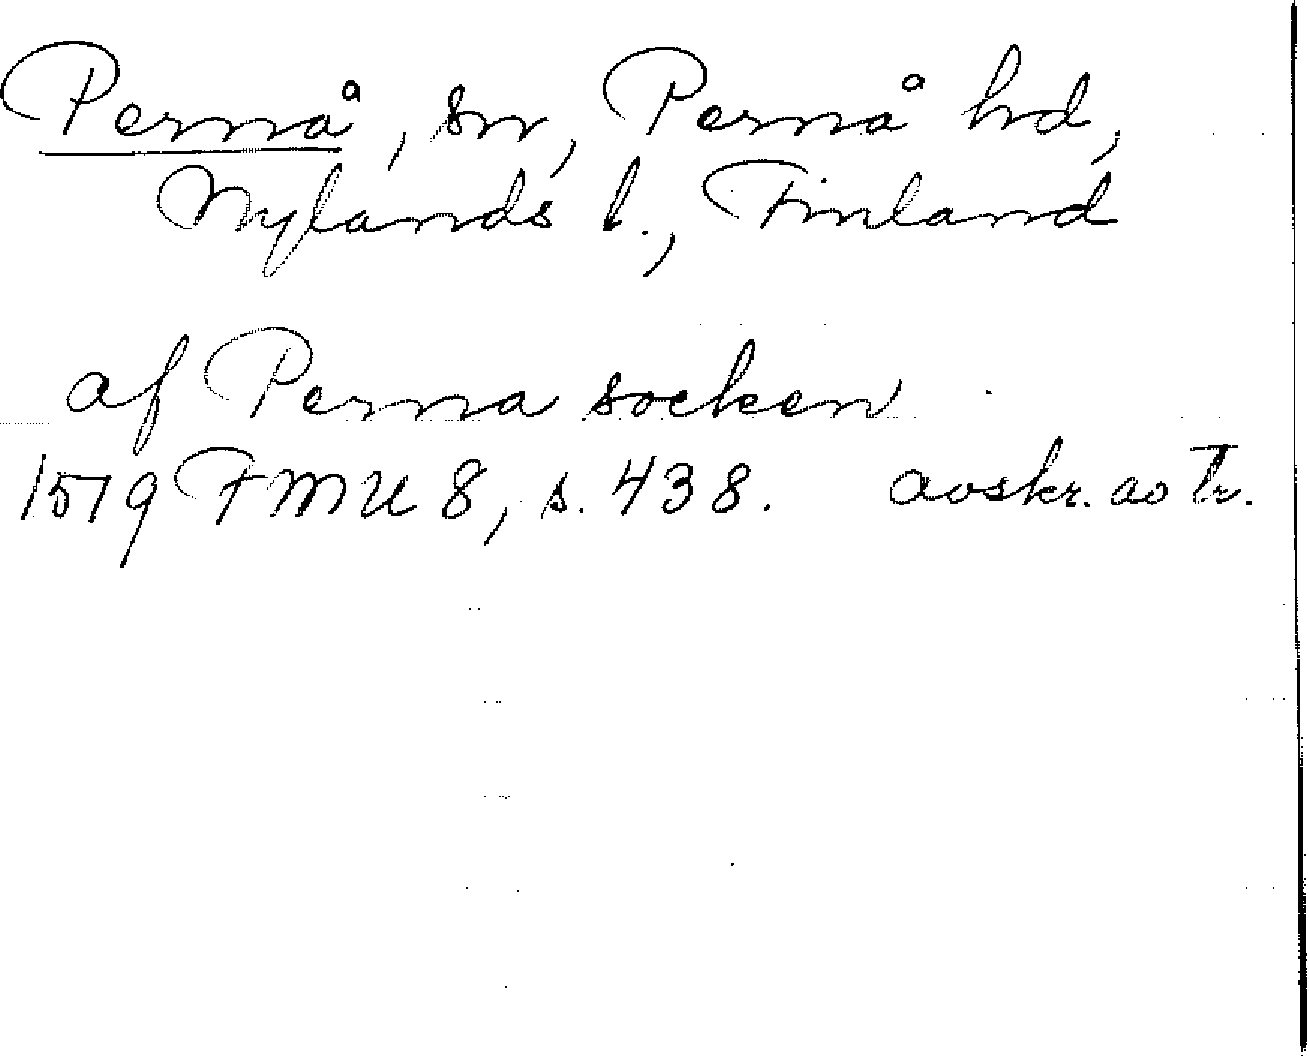 Pernå, sn, Pernå hd,
Nylands l., Finland
af Perna socken
1519 FMU 8, s. 438. avskr. av tr.